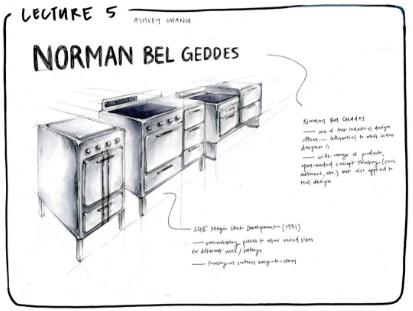 LECTURE 5
ASHLEY CHANG
NORMAN BEL GEDDES
Norman Bel Geddes
one of first industrial design
influential to what indus.
designer is
wide range of products,
open-ended concept thinking (cars,
etc.) but also applied to
real design
Magic Chef Development (1931)
pieces to allow varied sizes
for different uses /
surfaces easy-to-clean